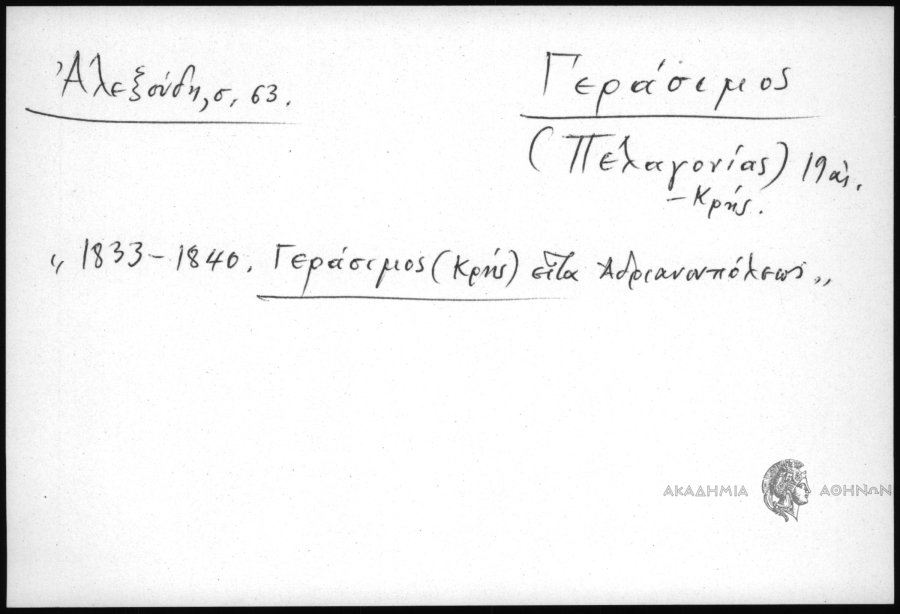 Ἀλεξούδη, σ. 63.
Γεράσιμος
(Πελαγονίας) 19 αἰ.
– Κρής.
„ 1833 – 1840. Γεράσιμος (Κρής) εἶτα Ἀδριανουπόλεως „
ΑΚΑΔΗΜΙΑ ΑΘΗΝΩΝ